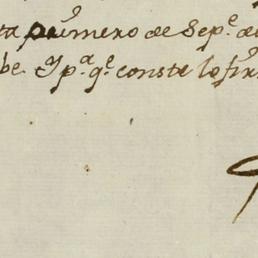 ta primero de Sep.e de
be. Y p.a q.e conste lo fir